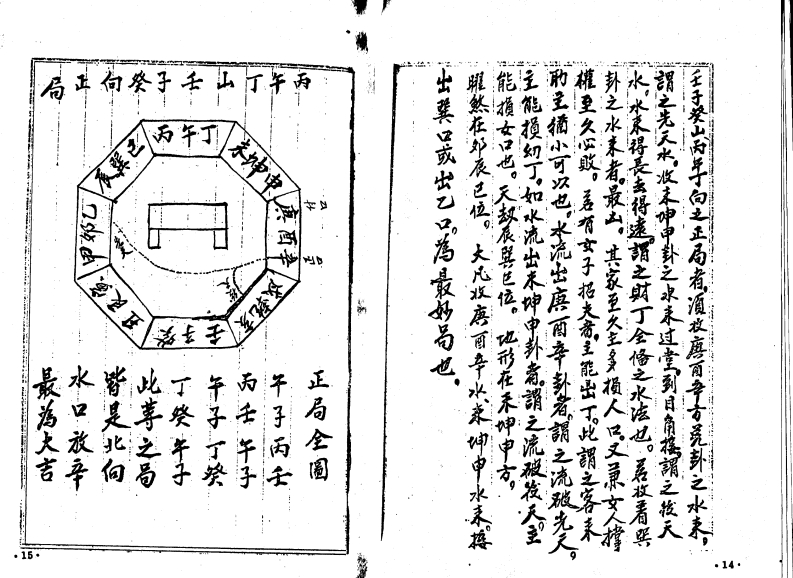 壬子癸山丙午丁向之正局者,須收庚酉辛方兌卦之水來,
謂之先天水。收未坤申卦之水來過堂。到目角接,謂之後天
水。水來得長去得遠,謂之財丁全備之水法也。若收着巽
卦之水來者。最凶。其家至久主多損人口。又兼女人撐
權至久必敗。若有女子招夫者。主能出丁。此謂之客來
助主猶小可以也。水流出庚酉辛卦者。謂之流破先天,
主能損幼丁。如水流出未坤申卦者。謂之流破後天。主
能損女口也。天劫辰巽巳位。地形在未坤申方。
曜煞在卯辰巳位。大凡收庚酉辛水,來坤申水來。接
出巽口或出乙口。為最妙局也。
·14·
丙午丁山壬子癸向正局
丙午丁
未坤申
庚酉辛
戌乾亥
壬子癸
丑艮寅
甲卯乙
辰巽巳
正局全圖
午子丙壬
丙壬午子
午子丁癸
丁癸午子
此等之局
皆是北向
水口放辛
最為大吉
·15·